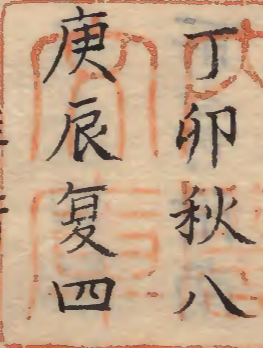 丁卯秋八
庚辰夏四